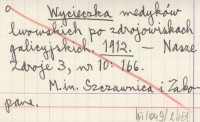 Wycieczka medyków
lwowskich po zdrojowiskach
galicyjskich. 1912. — Nasze
Zdroje 3, nr 10: 166.
M. in. Szczawnica i Zako-
pane.